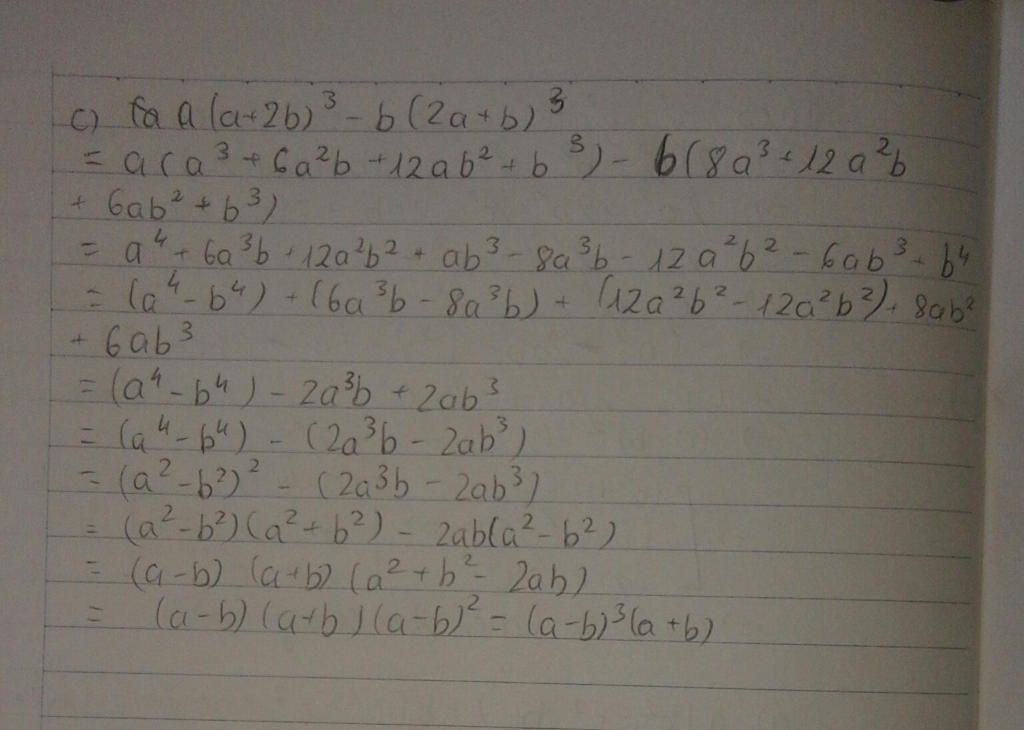 c) a(a+2b)³ - b(2a+b)³
= a(a³ + 6a²b + 12ab² + b³) - b(8a³ + 12a²b
+ 6ab² + b³)
= a⁴ + 6a³b + 12a²b² + ab³ - 8a³b - 12a²b² - 6ab³ - b⁴
= (a⁴ - b⁴) + (6a³b - 8a³b) + (12a²b² - 12a²b²) + 8ab²
+ 6ab³
= (a⁴ - b⁴) - 2a³b + 2ab³
= (a⁴ - b⁴) - (2a³b - 2ab³)
= (a² - b²)² - (2a³b - 2ab³)
= (a² - b²)(a² + b²) - 2ab(a² - b²)
= (a-b) (a+b) (a² + b² - 2ab)
= (a-b) (a+b) (a-b)² = (a-b)³(a+b)